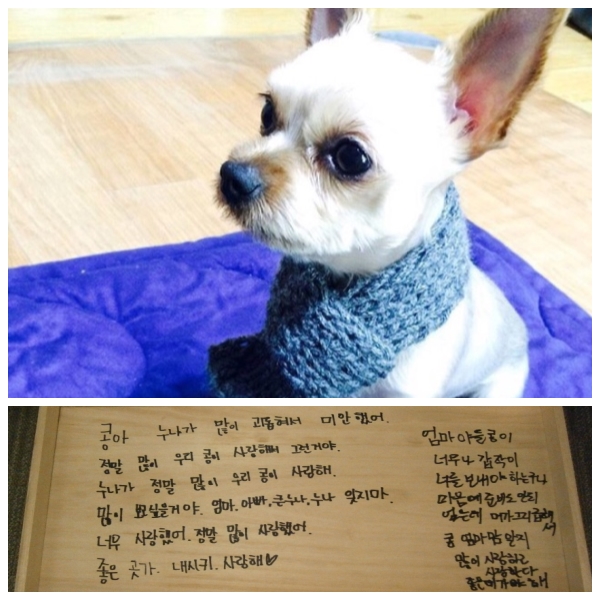 콩아 누나가 많이 괴롭혀서 미안했어.
정말 많이 우리 콩이 사랑해서 그런거야.
누나가 정말 많이 우리 콩이 사랑해.
많이 보고싶을거야. 엄마, 아빠, 큰누나, 누나 잊지마.
너무 사랑했어. 정말 많이 사랑했어.
좋은 곳가. 내시키. 사랑해♡
엄마 아들 콩이
너무나 갑작이
너를 보내야 하는구나
마음에 준비도 안되
콩 엄마 맘 알지
많이 사랑하고
사랑한다
좋은데 가야해